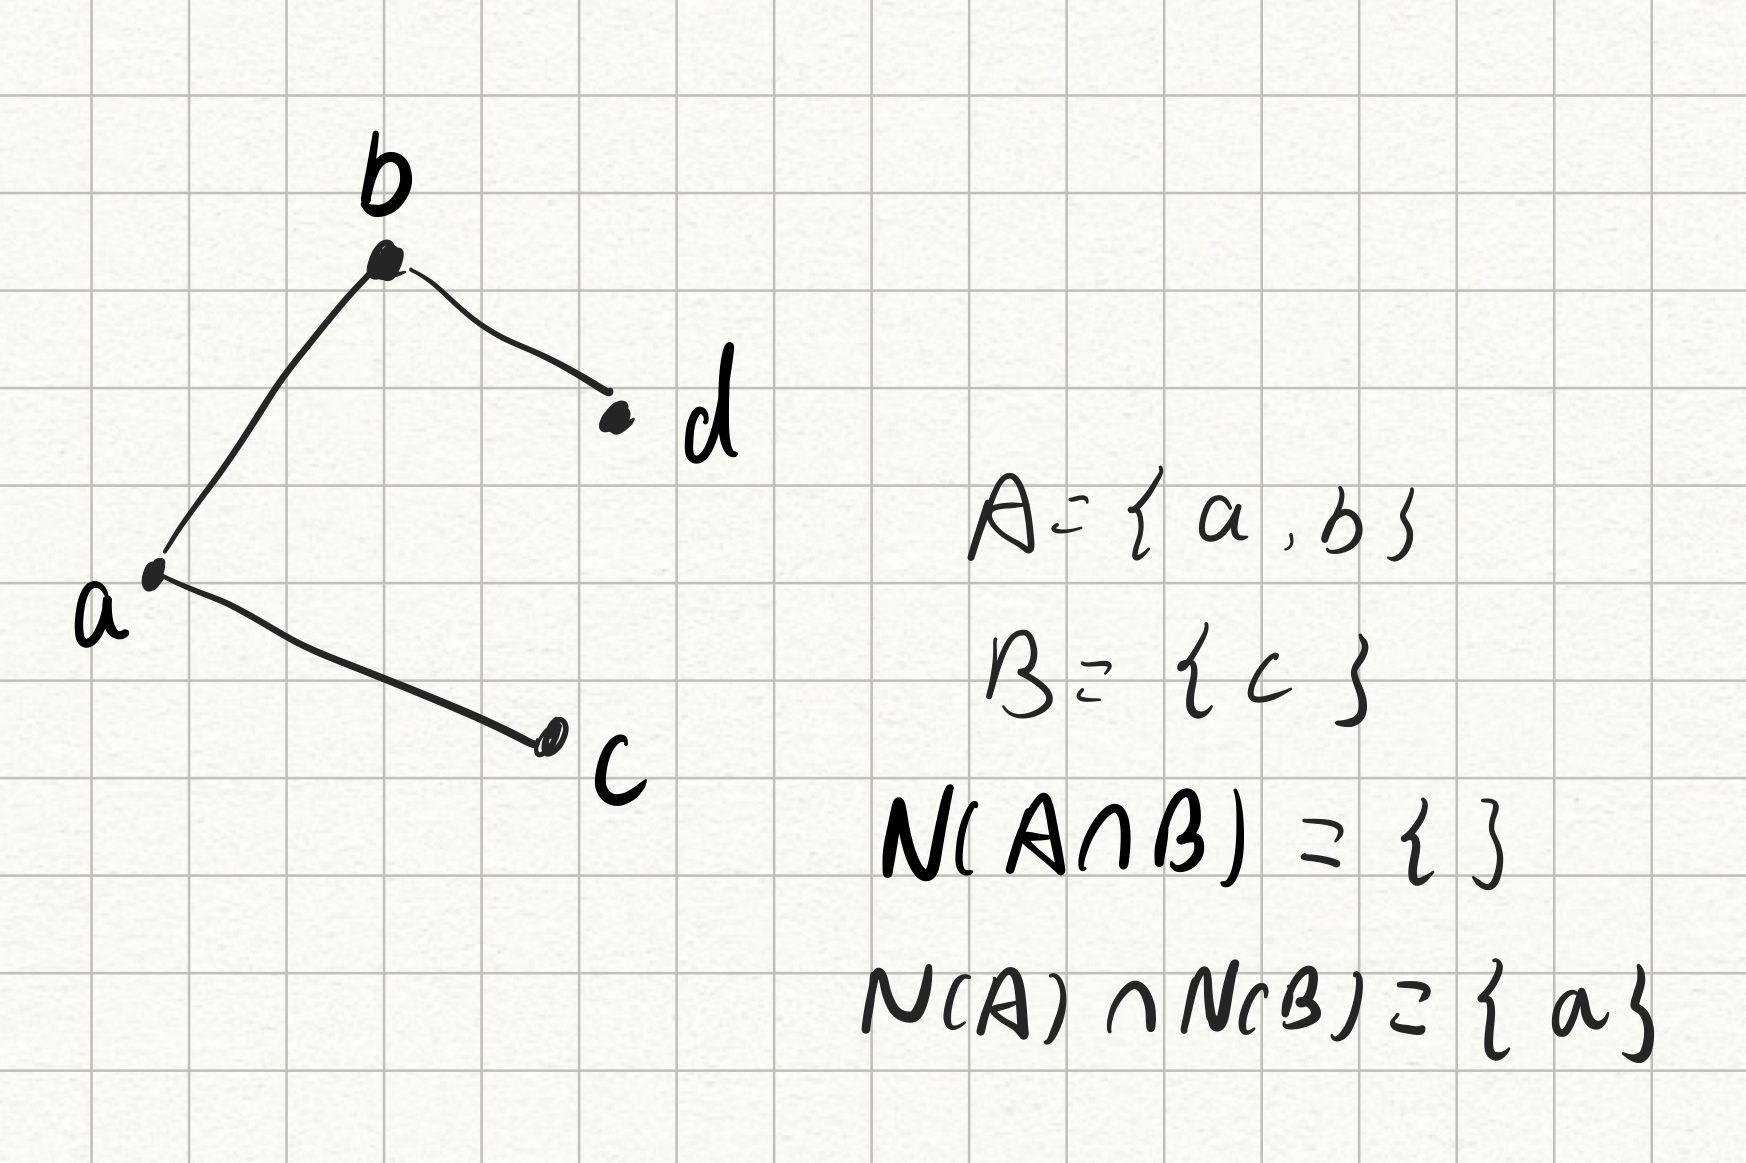 b
d
a
c
A = { a , b }
B = { c }
N( A ∩ B ) = { }
N(A) ∩ N(B) = { a }